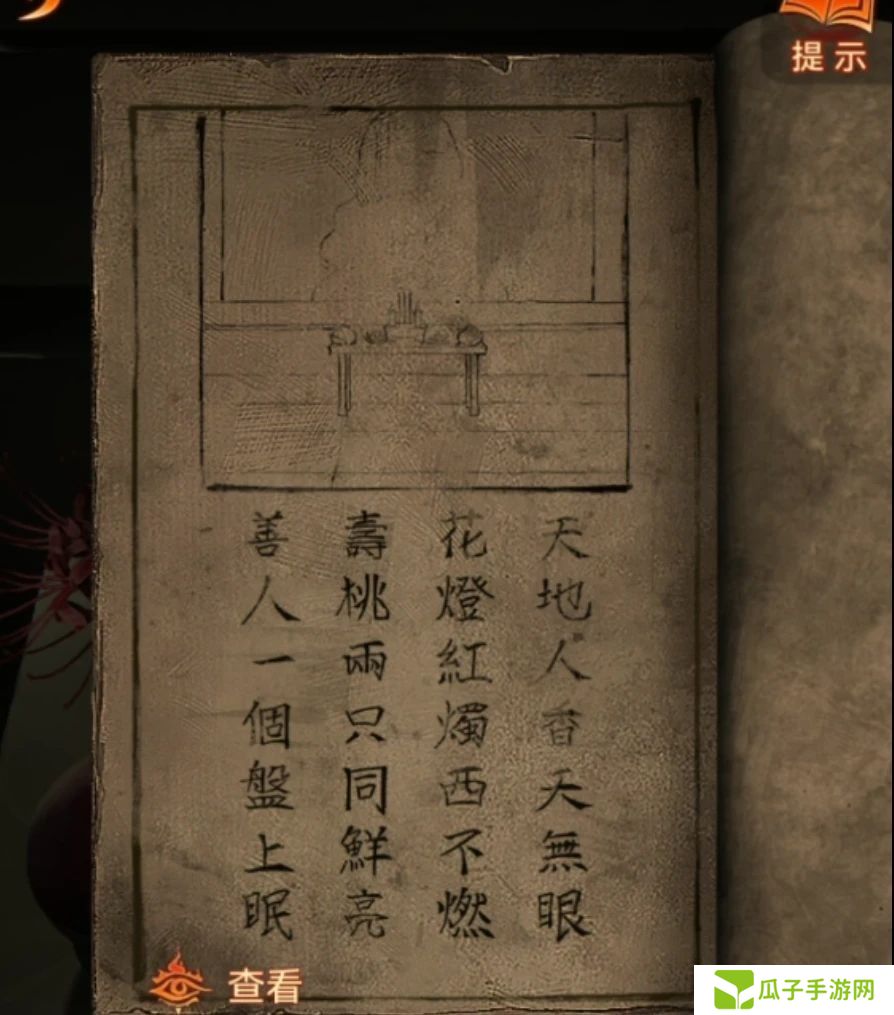 提示
天地人香天無眼
花燈紅燭西不燃
壽桃兩只同鮮亮
善人一個盤上眠
查看
瓜子手游网